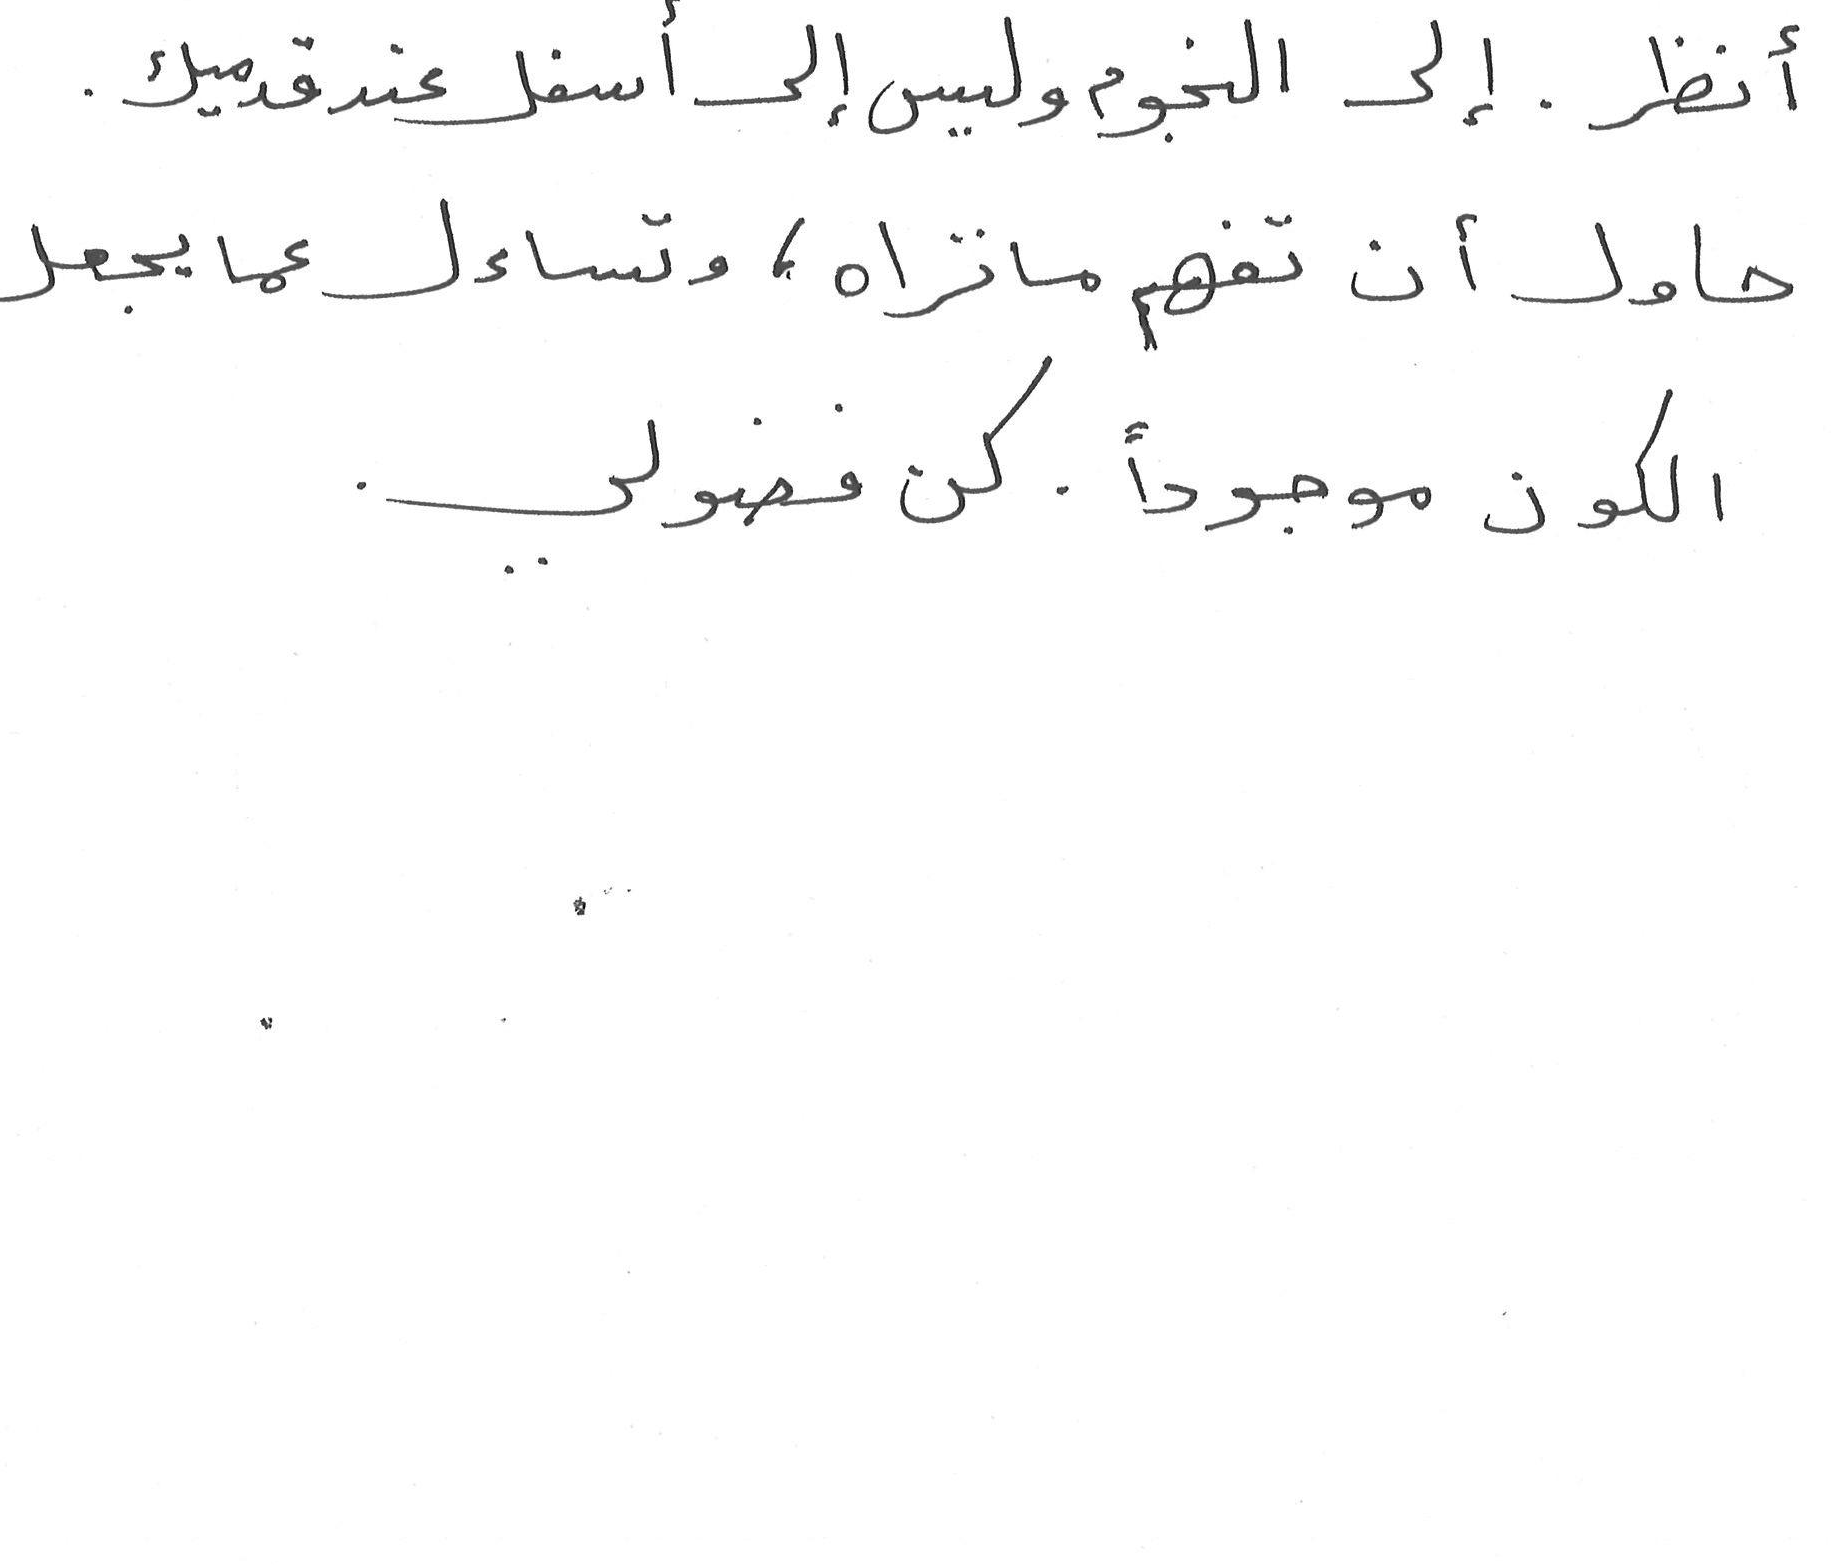 أنظر . إلى النجوم وليس إلى أسفل عند قدميك .
حاول أن تفهم ما تراه ، وتساءل عما يجعل
الكون موجوداً . كن فضولي .